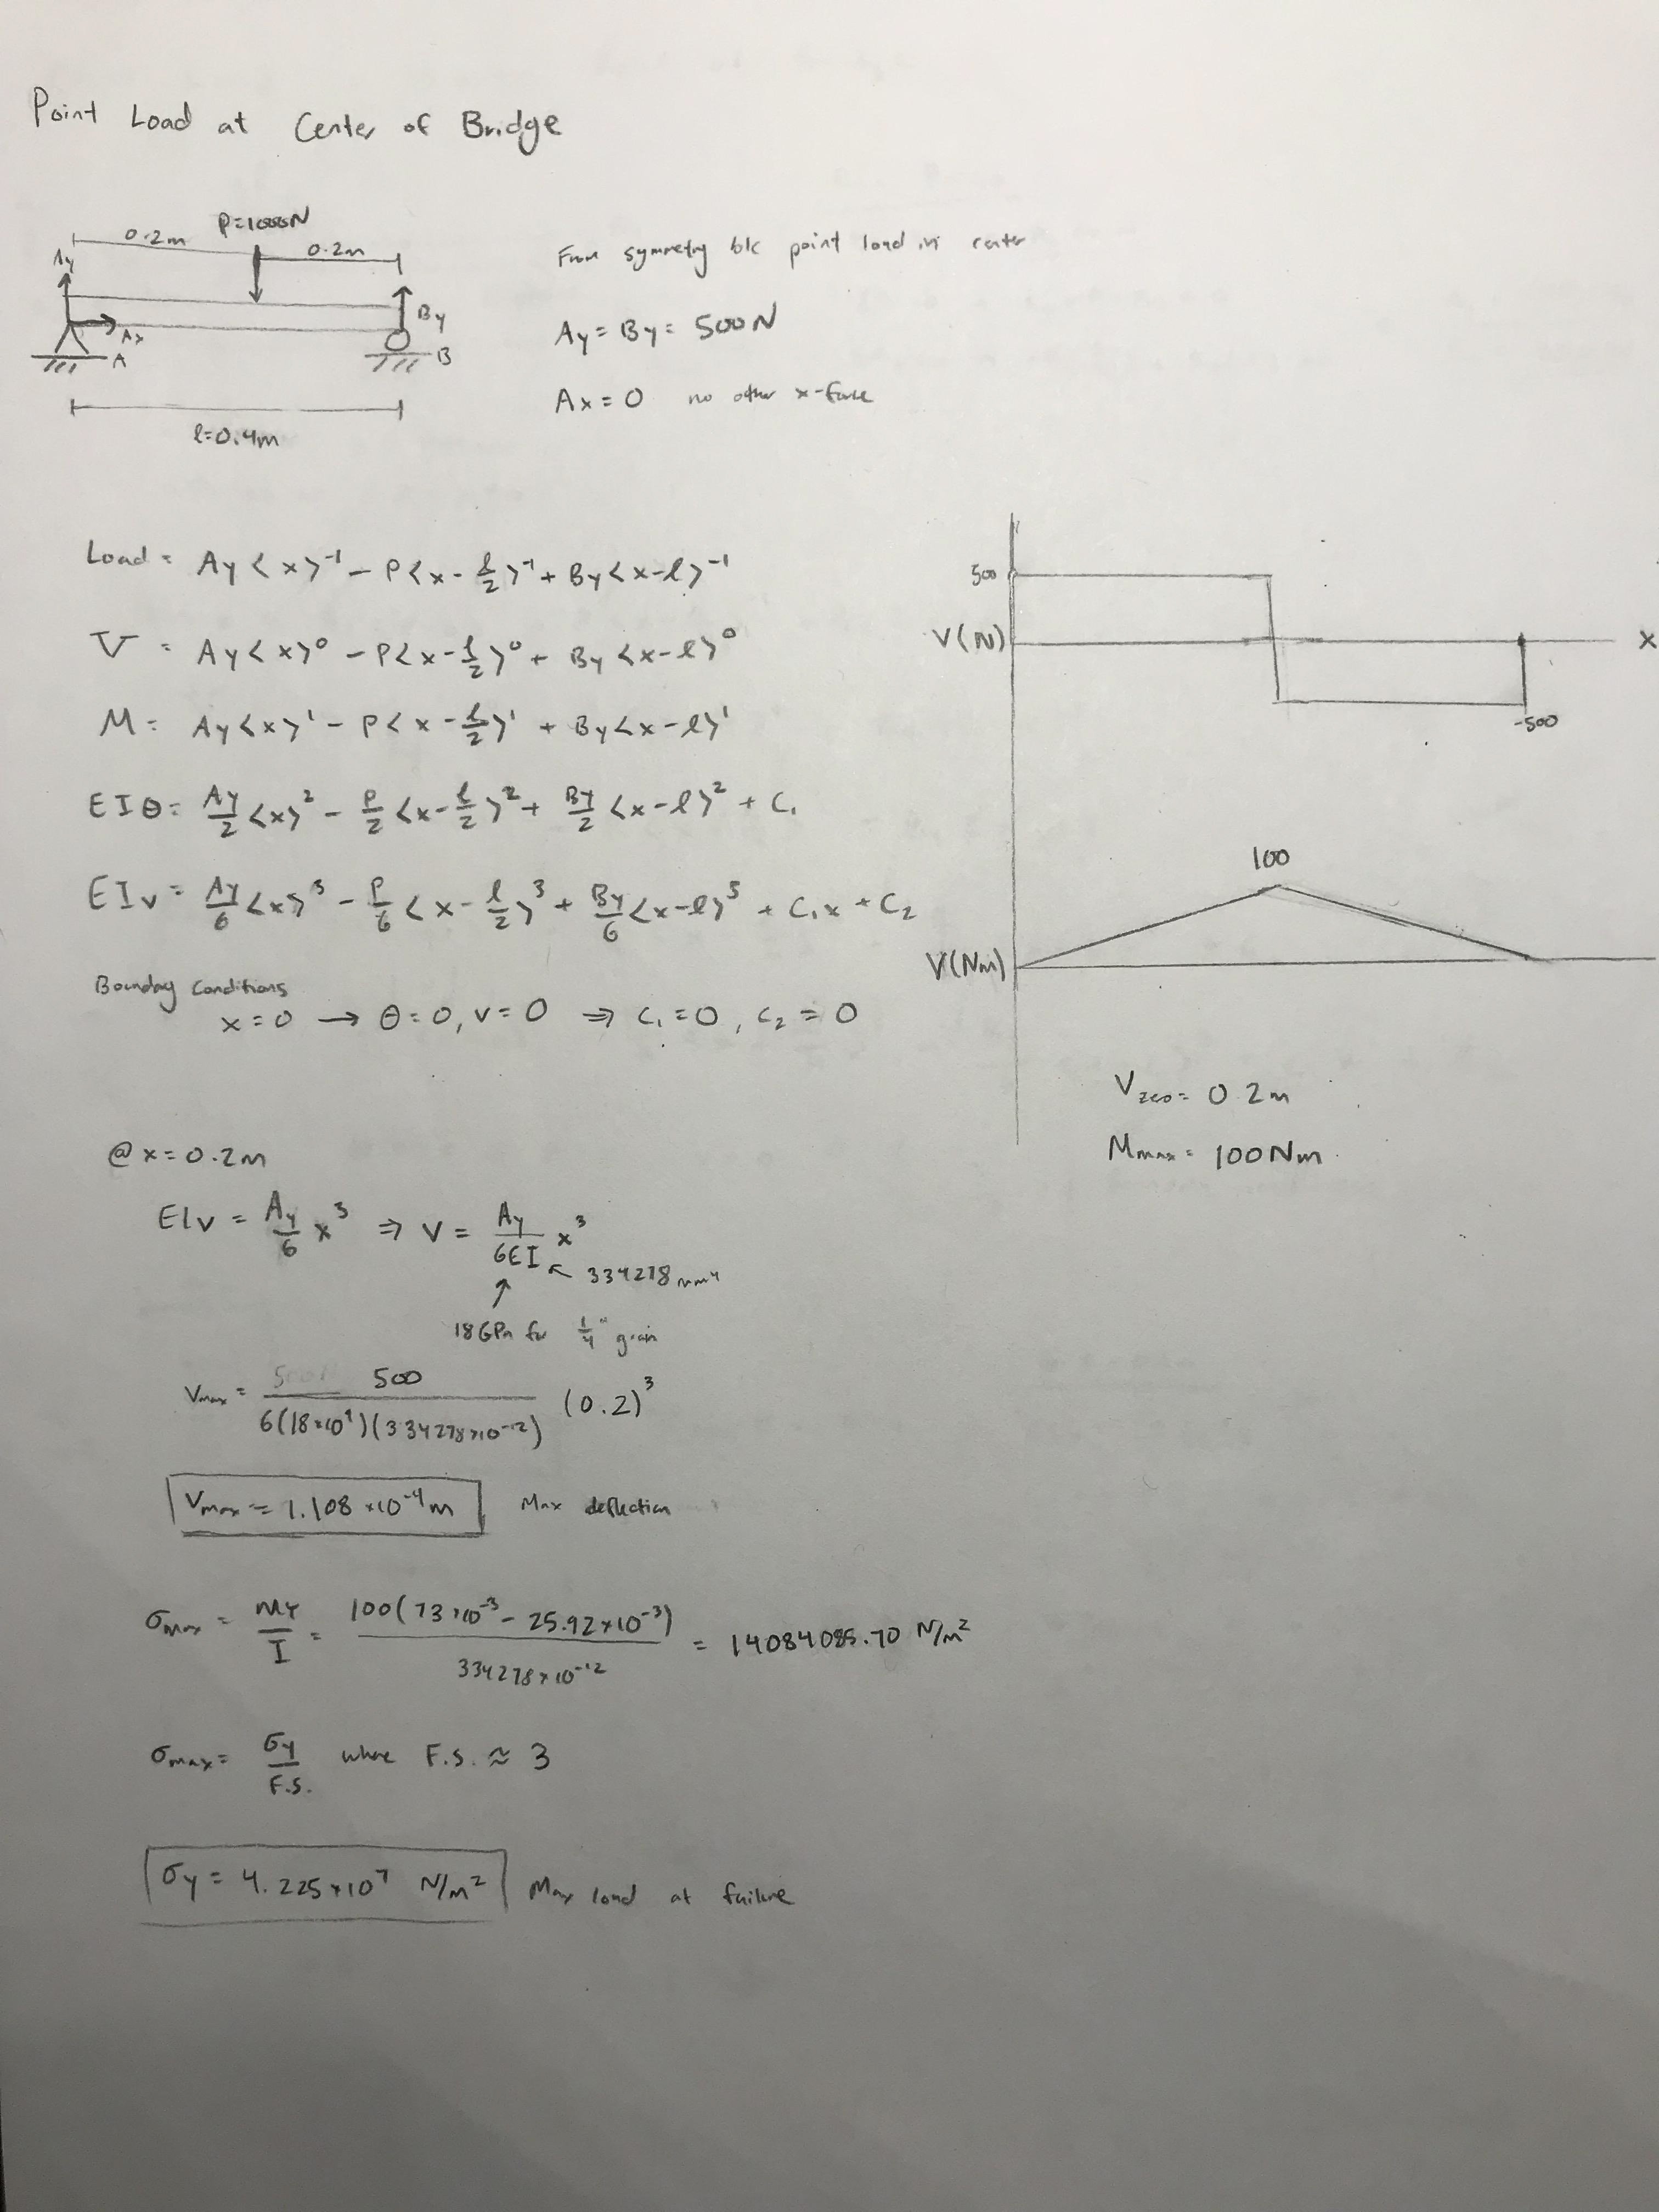 Point Load at Center of Bridge
P=1000N
0.2m
0.2m
Ay
By
Ax
A
B
l=0.4m
From symmetry b/c point load in center
Ay = By = 500N
Ax = 0 no other x-force
Load = Ay<x>⁻¹ - P<x - l/2>⁻¹ + By<x-l>⁻¹
V = Ay<x>⁰ - P<x - l/2>⁰ + By<x-l>⁰
M = Ay<x>¹ - P<x - l/2>¹ + By<x-l>¹
EIθ = Ay/2 <x>² - P/2 <x - l/2>² + By/2 <x-l>² + C₁
EIv = Ay/6 <x>³ - P/6 <x - l/2>³ + By/6 <x-l>³ + C₁x + C₂
Boundary Conditions
x=0 → θ=0, v=0 ⇒ C₁=0, C₂=0
500
V(N)
x
-500
100
V(Nm)
Vzero = 0.2m
Mmax = 100Nm
@ x=0.2m
EIv = Ay/6 x³ ⇒ v = Ay/6EI x³
334278 mm⁴
18GPa for 1/4" grain
Vmax = 500/6(18×10⁹)(334278×10⁻¹²) (0.2)³
Vmax = 1.108×10⁻⁴m Max deflection
σmax = My/I = 100(73×10⁻³ - 25.92×10⁻³)/334278×10⁻¹² = 14084085.70 N/m²
σmax = σy/F.S. where F.S. ≈ 3
σy = 4.225×10⁷ N/m² Max load at failure